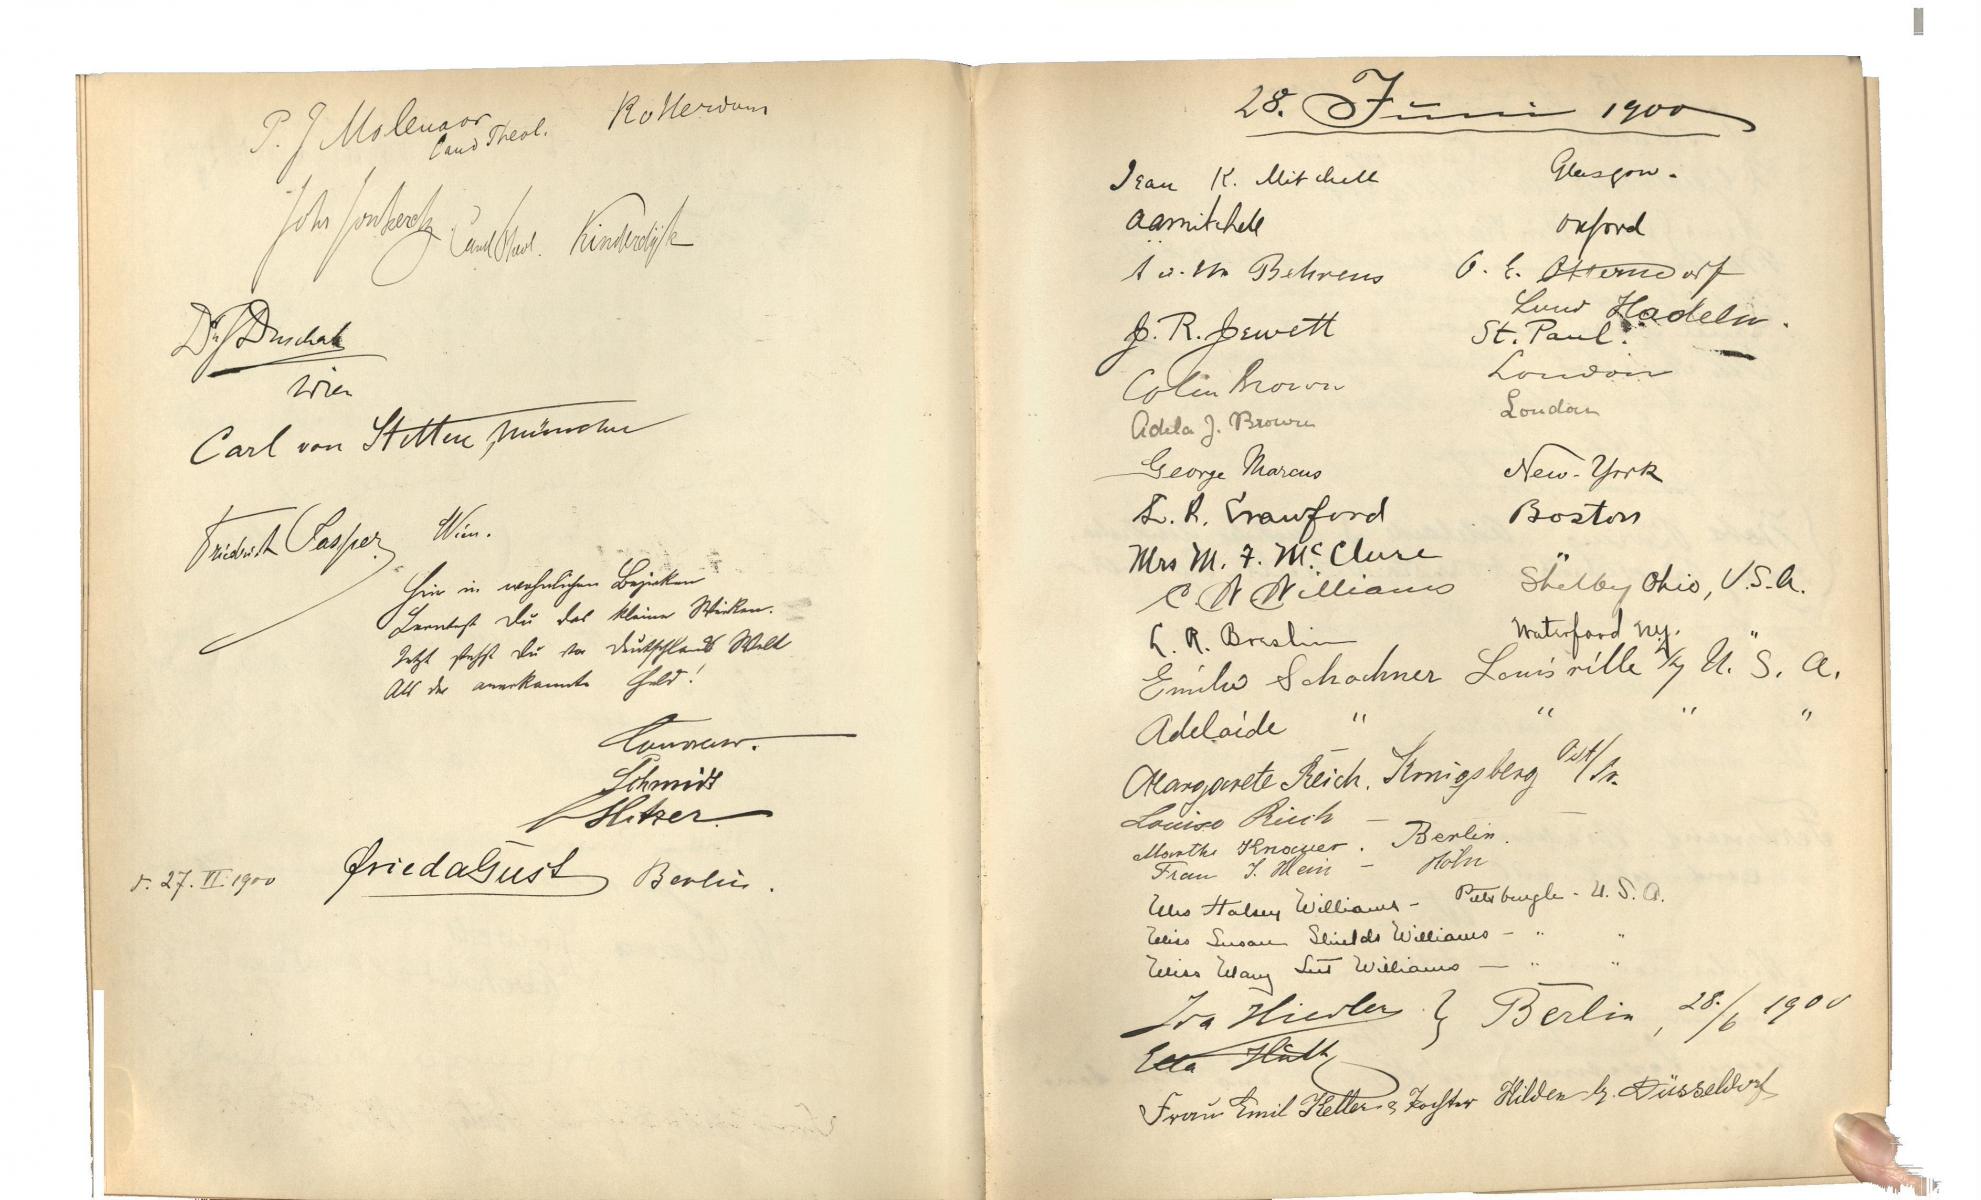 P. J Molenaar Rotterdam
Cand Theol.
Joh Jonkerck Cand Theol. Kinderdijk
Dr J Duschak
Wien
Carl von Stetten, München
Friedrich Casper Wien.
Hier in wohnlichen Bezirken
Lerntest Du das kleine Wirken.
Jetzt stehst Du vor Deutschlands Welt
Als der anerkannte Held!
Schmidt
Hitzer.
d. 27. VI. 1900 Frieda Gust Berlin.
28. Juni 1900
Jean K. Mitchell Glasgow.
AAMitchell Oxford
Behrens O. E. Otterndorf
Land Hadeln.
J. R. Jewett St. Paul.
Colin Brown London
Adela J. Brown London
George Marcus New-York
L. R. Crawford Boston
Mrs M. F. McClure "
C. W Williams Shelby Ohio, U.S.A.
L. R. Breslin Waterford N.Y. "
Emilie Schachner Louisville Ky U. S. A.
Adelaide " " " "
Margarete Reich. Königsberg Ost/Pr.
Louise Reich — —
Marthe Knauer. Berlin.
Frau J. Klein – Köln
Mrs Halsey Williams – Pittsburgh – U. S. A.
Miss Susan Shields Williams – " "
Miss Mary Williams — " "
Ida Hiedler } Berlin, 28./6 1900
Ella
Frau Emil Keller & Tochter Hilden b. Düsseldorf